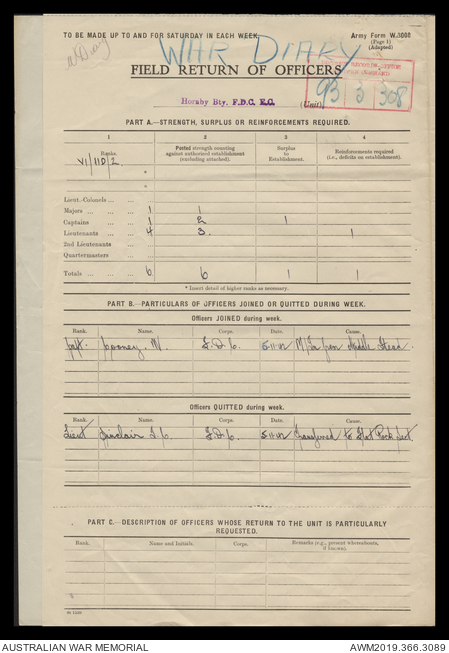 TO BE MADE UP TO AND FOR SATURDAY IN EACH WEEK.
Army Form W.3008
(Page 1)
(Adapted)
W Diary
WAR DIARY
FIELD RETURN OF OFFICERS
93 3 308
Hornby Bty. F.D.C. E.C. (Unit)
PART A.—STRENGTH, SURPLUS OR REINFORCEMENTS REQUIRED.
1 2 3 4
Ranks.
Posted strength counting against authorized establishment (excluding attached).
Surplus to Establishment.
Reinforcements required (i.e., deficits on establishment).
VI/11D/2
*
*
Lieut.-Colonels ... ...
Majors ... ... ... 1 1
Captains ... ... 1 2 1
Lieutenants ... ... 4 3. 1
2nd Lieutenants ...
Quartermasters ...
Totals ... ... ... 6 6 1 1
* Insert detail of higher ranks as necessary.
PART B.—PARTICULARS OF OFFICERS JOINED OR QUITTED DURING WEEK.
Officers JOINED during week.
Rank. Name. Corps. Date. Cause.
Capt. Cooney. W. F.D.C. 5-11-42 M/In from Middle Head.
Officers QUITTED during week.
Rank. Name. Corps. Date. Cause.
Lieut Sinclair F.D.C. 5-11-42 Transferred to
PART C.—DESCRIPTION OF OFFICERS WHOSE RETURN TO THE UNIT IS PARTICULARLY REQUESTED.
Rank. Name and Initials. Corps. Remarks (e.g., present whereabouts, if known).
AUSTRALIAN WAR MEMORIAL
AWM2019.366.3089